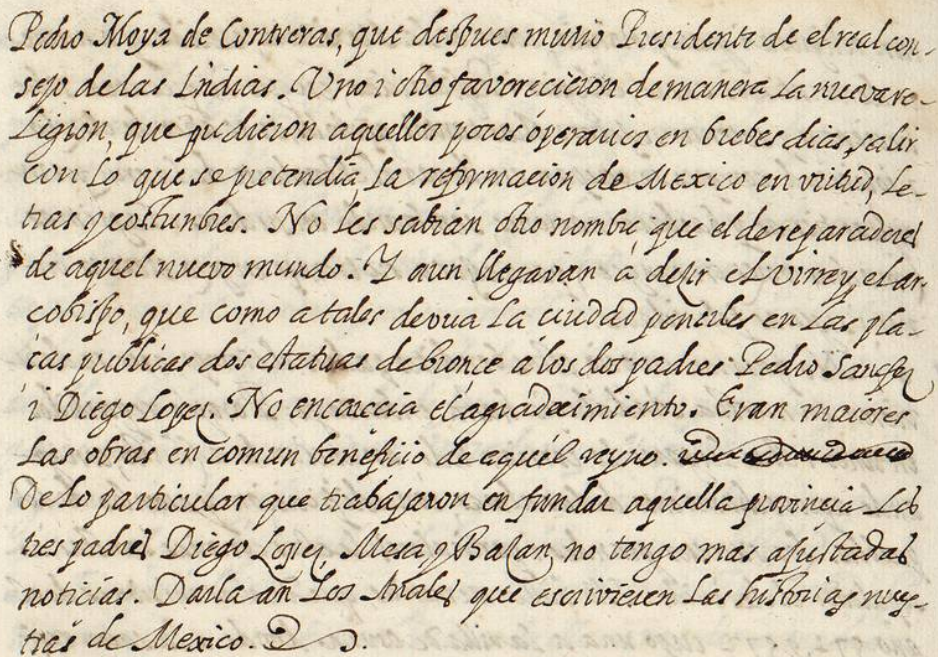 Pedro Moya de Contreras, que despues murio Presidente de el real con-
sejo de las Indias. Uno i otro favorecieron de manera la nueva re-
ligion, que pudieron aquellos pocos óperarios en brebes dias, salir
con lo que se pretendia la reformacion de Mexico en virtud, le-
tras y costunbres. No les sabian otro nombre, que el de reparadores
de aquel nuevo mundo. Y aun llegavan á dezir el Virrey, el ar-
cobispo, que como a tales devia la ciudad ponerles en las pla-
cas publicas dos estatuas de bronce á los dos padres Pedro Sanchez
i Diego Lopez. No encarecia el agradecimiento. Eran maiores
las obras en comun beneficio de aquel reyno.
De lo particular que trabajaron en fundar aquella provincia los
tres padres Diego Lopez, Mesa y Bazan no tengo mas ajustadas
noticias. Darla an los Anales que escrivieren las historias nues-
tras de Mexico.